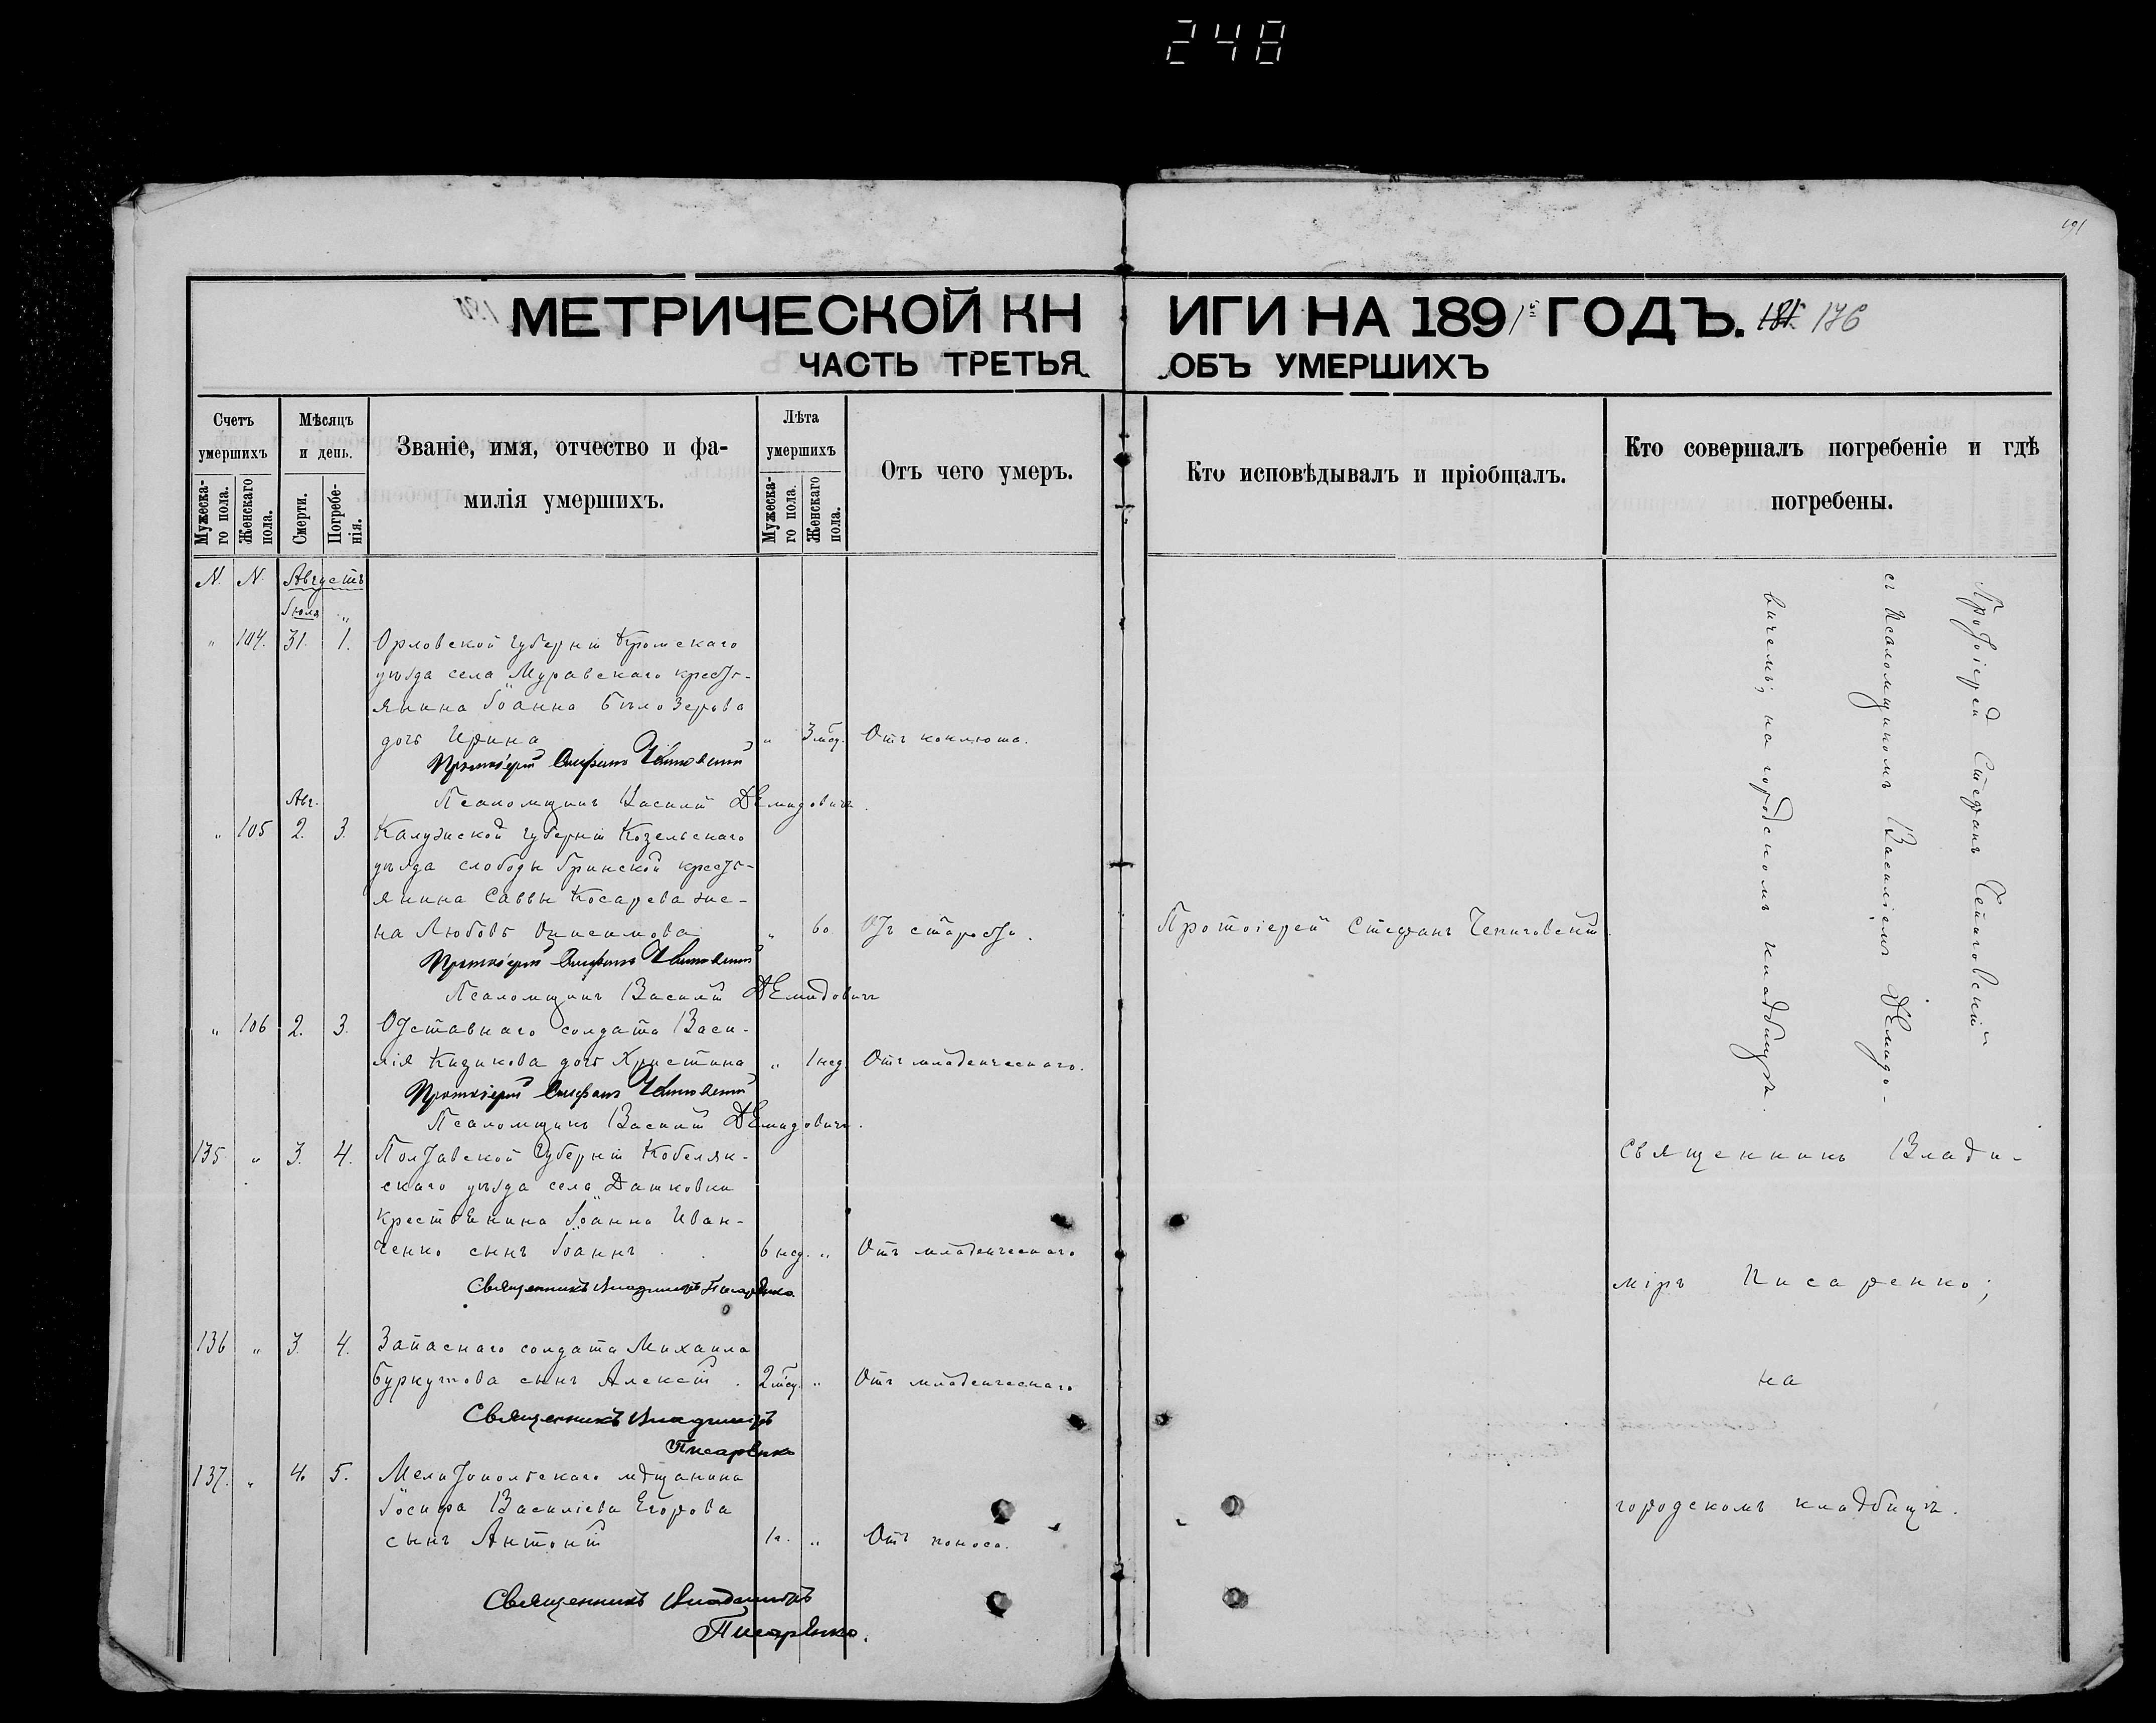 248
191
МЕТРИЧЕСКОЙ КНИГИ НА 1891й ГОДЪ. 181. 176
ЧАСТЬ ТРЕТЬЯ ОБЪ УМЕРШИХЪ
Счетъ умершихъ
Мужескаго пола.
Женскаго пола.
Мѣсяцъ и день.
Смерти.
Погребенія.
Званіе, имя, отчество и фамилія умершихъ.
Лѣта умершихъ
Мужескаго пола.
Женскаго пола.
Отъ чего умеръ.
Кто исповѣдывалъ и пріобщалъ.
Кто совершалъ погребеніе и гдѣ погребены.
N. N. Августъ
Іюля „
„ 104. 31. 1. Орловской губерніи Кромскаго
уѣзда села Муравскаго крестья-
янина Іоанна Бѣлозерова
дочь Ирина „ 3 мѣс. Отъ коклюша.
Протоіерей Стефанъ
Авг. Псаломщикъ Василій Демидовичъ.
„ 105 2. 3. Калужской губерніи Козельскаго
уѣзда слободы крест-
янина Саввы Косарева же-
на Любовь Онисимова „ 60 Отъ старости. Протоіерей Стефанъ Чепиговскій.
Протоіерей Стефанъ
Псаломщикъ Василій Демидовичъ
„ 106 2. 3. Отставнаго солдата Васи-
лія Кизикова дочь Христина „ 1 нед. Отъ младенческаго.
Протоіерей Стефанъ
Псаломщикъ Василій Демидовичъ.
Протоіерей Стефанъ Чепиговскій
съ Псаломщикомъ Василіемъ Демидо-
вичемъ; на городскомъ кладбищѣ.
135 „ 3. 4. Полтавской губерніи Кобеляк-
скаго уѣзда села Дашковки
крестьянина Іоанна Иван-
ченко сынъ Іоаннъ. 6 нед. „ Отъ младенческаго
Священникъ Владиміръ Писаренко
136 „ 3. 4. Запаснаго солдата Михаила
Буркутова сынъ Алексій. 2 мѣс. „ Отъ младенческаго
Священникъ Владиміръ
Писаренко
137. „ 4. 5. Мелитопольскаго мѣщанина
Іосифа Василіева Егорова
сынъ Антоній 1 г. „ Отъ поноса.
Священникъ Владиміръ
Писаренко.
Священникъ Влади-
міръ Писаренко;
на
городскомъ кладбищѣ.